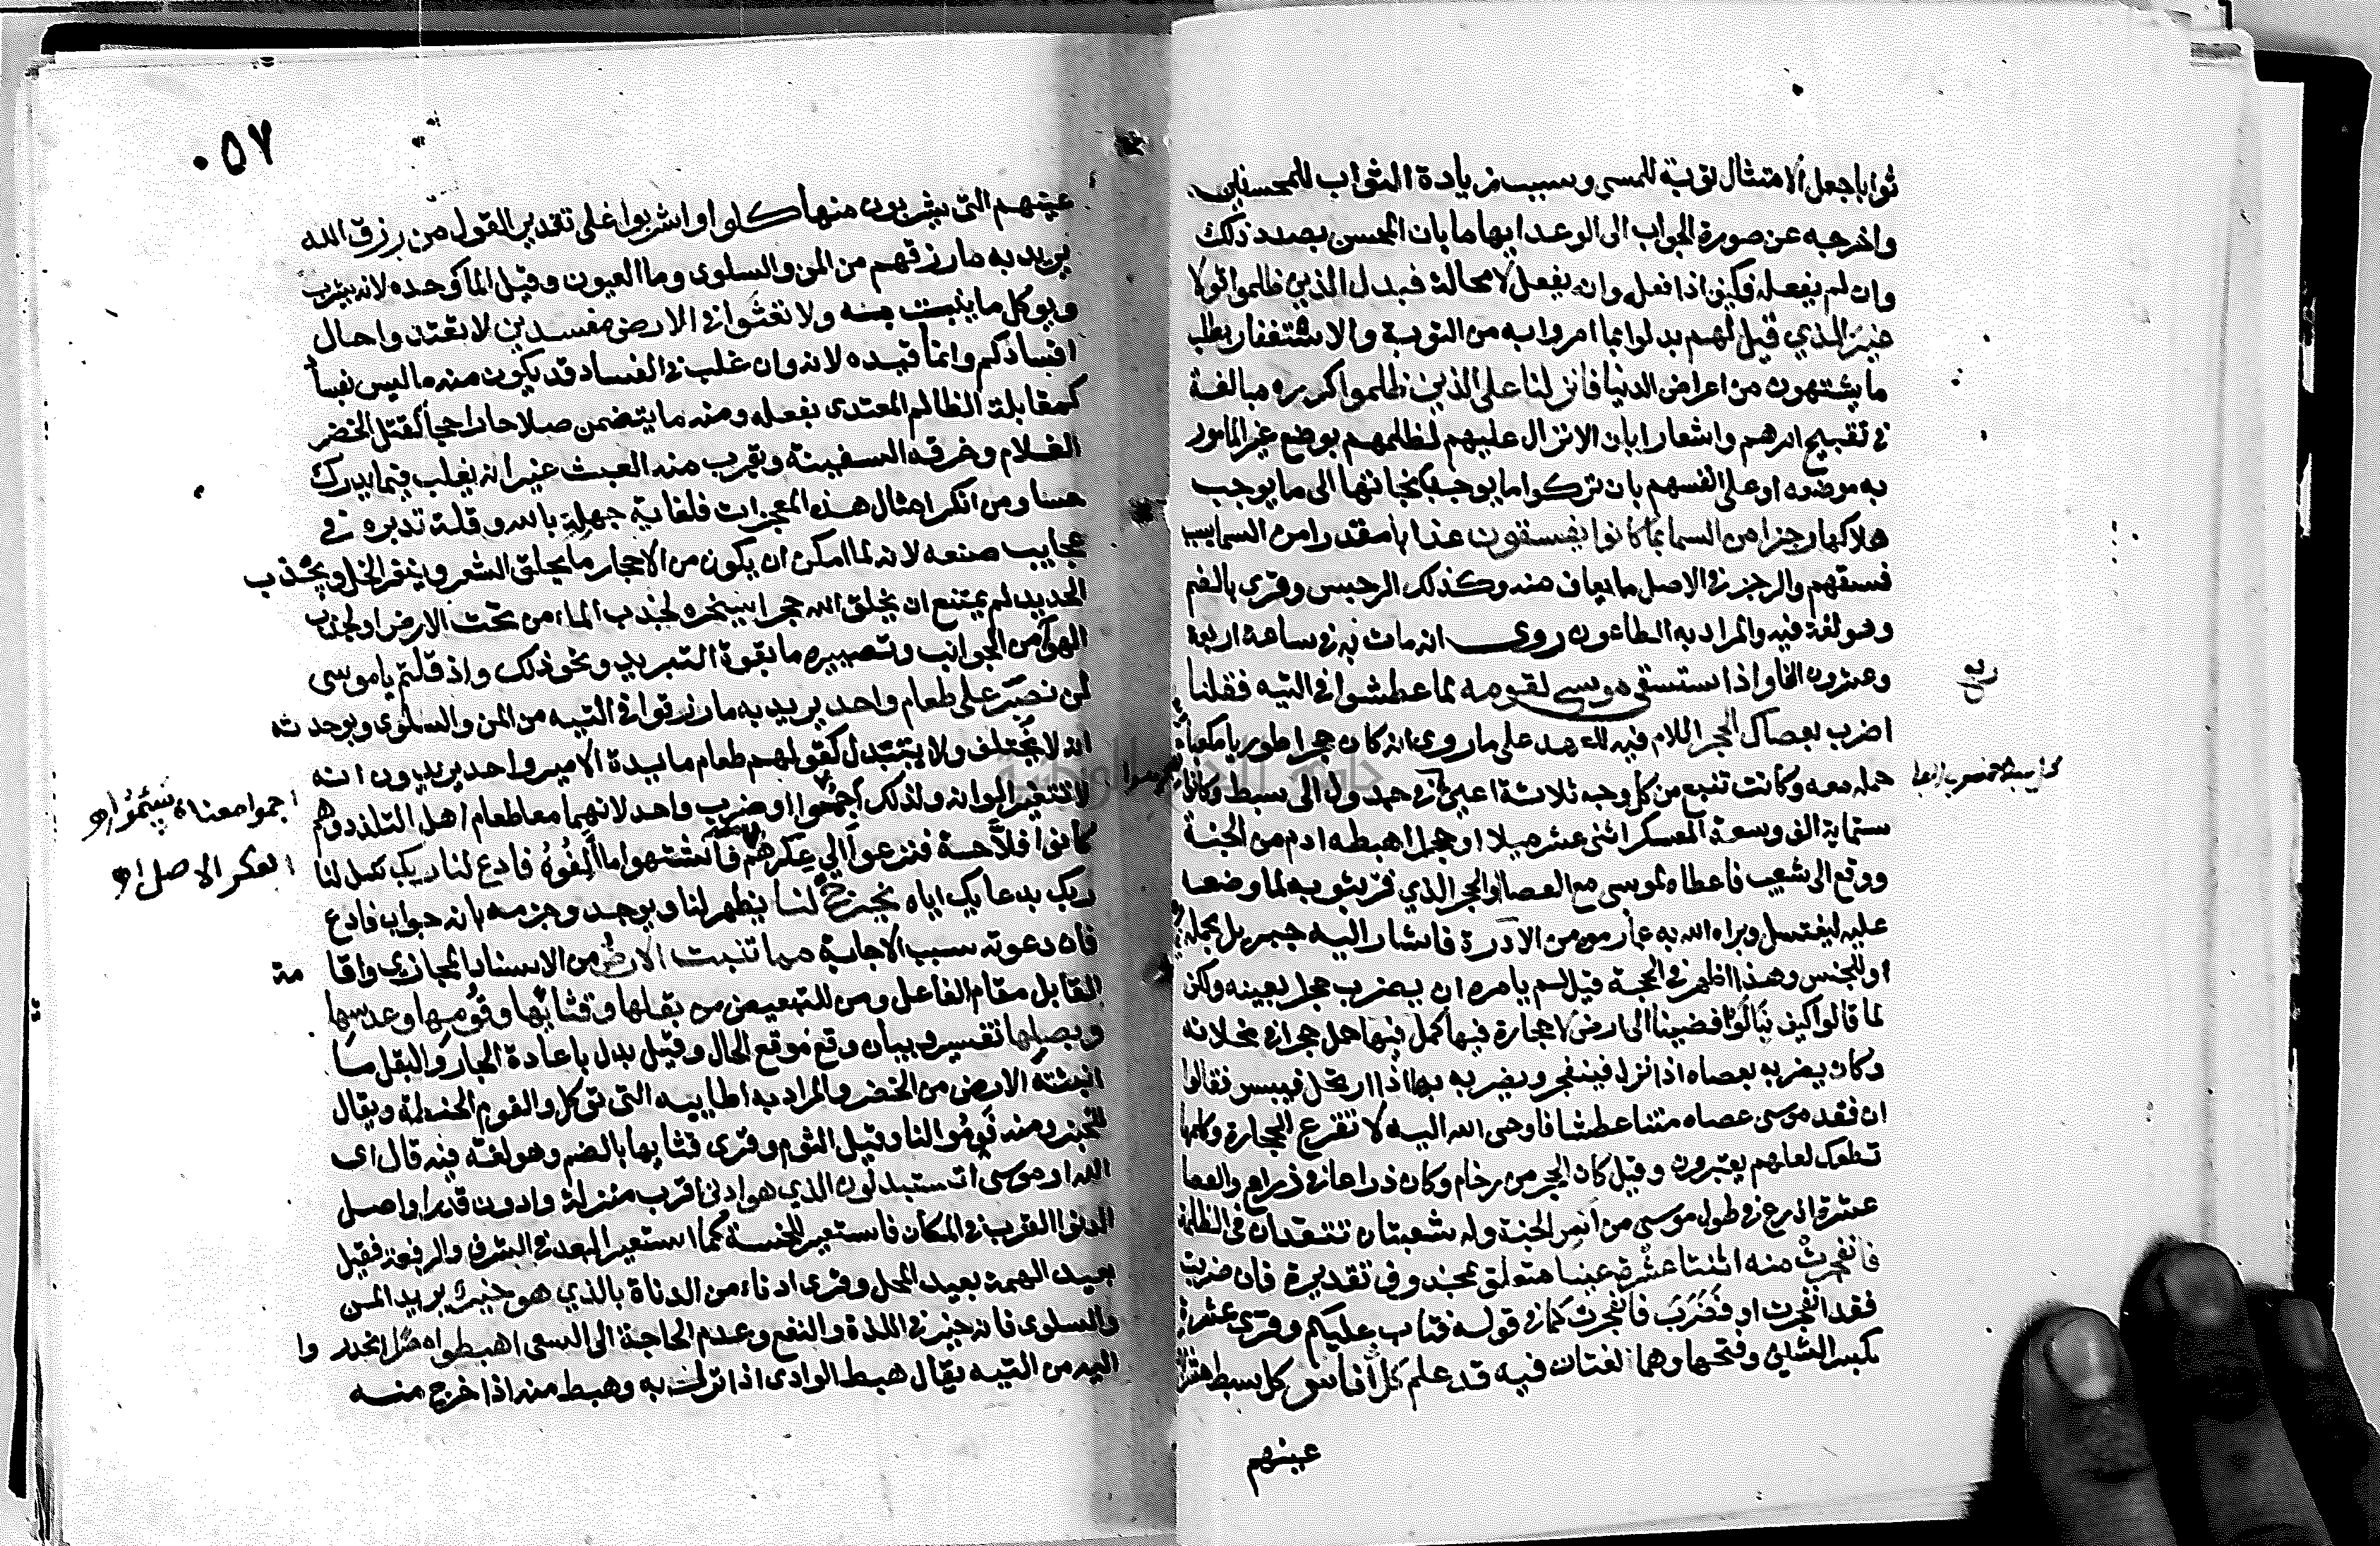 ثوابا جعل الامتثال توبة للمسي وسبب زيادة الثواب للمحسنين
واخرجه عن صورة الجواب الى الوعد ايهاما بان المحسن بصدد ذلك
وان لم يفعله فكيف اذا فعل وانه يفعل لا محالة فبدل الذين ظلموا قولا
غير الذي قيل لهم بدلوا بما امروا به من التوبة والاستغفار بطلب
ما يشتهون من اعراض الدنيا فانزلنا على الذين ظلموا كرره مبالغة
في تقبيح امرهم واشعارا بان الانزال عليهم لظلمهم بوضع غير المامور
به موضعه او على انفسهم بان تركوا ما يوجب نجاتها الى ما يوجب
هلاكها رجزا من السما بما كانوا يفسقون عذابا مقدرا من السما بسبب
فسقهم والرجز في الاصل ما يعاف منه وكذلك الرجس وقرى بالضم
وهو لغة فيه والمراد به الطاعون روى انه مات به في ساعة اربعة
وعشرون الفا واذ استسقى موسى لقومه لما عطشوا في التيه فقلنا
اضرب بعصاك الحجر اللام فيه للعهد على ما روى انه كان حجرا طوريا مكعبا
حمله معه وكانت تنبع من كل وجه ثلاثة اعين في جدول الى سبط وكانوا
ستماية الف وسعة المعسكر اثنى عشر ميلا او حجرا اهبطه ادم من الجنة
ووقع الى شعيب فاعطاه لموسى مع العصا والحجر الذي فر بثوبه لما وضعه
عليه ليغتسل وبراه الله به عما رموه من الادرة فاشار اليه جبريل بحمله
او للجنس وهذا اظهر في الحجة قيل لم يامره ان يضرب حجرا بعينه ولكن
لما قالوا كيف بنا لو افضينا الى ارض لا حجارة فيها حمل حجرا في مخلاته
وكان يضربه بعصاه اذا نزل فينفجر ويضربه بها اذا ارتحل فييبس فقالوا
ان فقد موسى عصاه متنا عطشا فاوحى الله اليه لا تقرع الحجارة وكلمها
تطعك لعلهم يعتبرون وقيل كان الحجر من رخام وكان ذراعا في ذراع والعصا
عشرة اذرع في طول موسى من اس الجنة وله شعبتان تتقدان في الظلمة
فانفجرت منه اثنتا عشرة عينا متعلق بمحذوف تقديره فان ضربت
فقد انفجرت او فضرب فانفجرت كما في قوله فتاب عليكم وقرى عشرة
بكسر الشين وفتحها وهما لغتان فيه قد علم كل اناس كل سبط
عينهم
٠٥٧
عينهم التى يشربون منها كلوا واشربوا على تقدير القول من رزق الله
يريد به ما رزقهم من المن والسلوى وما العيون وقيل الما وحده لانه يشرب
ويوكل ما ينبت منه ولا تعثوا في الارض مفسدين لا تعتدوا حال
افسادكم وانما قيده لانه وان غلب في الفساد قد يكون منه ما ليس بفساد
كمقابلة الظالم المعتدى بفعله ومنه ما يتضمن صلاحا راجحا كقتل الخضر
الغلام وخرقه السفينة ويقرب منه العبث غير انه يغلب فيما يدرك
حسا ومن انكر امثال هذه المعجزات فلغاية جهله بالله وقلة تدبره في
عجايب صنعه لانه لما امكن ان يكون من الاحجار ما يحلق الشعر وينفر الخل ويجذب
الحديد لم يمتنع ان يخلق الله حجرا يسخره لجذب الماء من تحت الارض او لجذب
الهوا من الجوانب وتصييره ما بقوة التبريد ونحو ذلك واذ قلتم يا موسى
لن نصبر على طعام واحد يريد به ما رزقوا في التيه من المن والسلوى وبوحدته
انه لا يختلف ولا يتبدل كقولهم طعام مايدة الامير واحد يريدون انه
لا تتغير الوانه ولذلك اجموا او ضرب واحد لانهما معا طعام اهل التلذذ وهم
كانوا فلاحة فنزعوا الى عكرهم فاشتهوا ما الفوه فادع لنا ربك سل لنا
ربك بدعايك اياه يخرج لنا يظهر لنا ويوجد وجزمه بانه جواب فادع
فان دعوته سبب الاجابة مما تنبت الارض من الاسناد المجازي واقامة
القابل مقام الفاعل ومن للتبعيض من بقلها وقثايها وفومها وعدسها
وبصلها تفسير وبيان وقع موقع الحال وقيل بدل باعادة الجار والبقل ما
انبتته الارض من الخضر والمراد به اطاييبه التى توكل والفوم الحنطة ويقال
للخبز ومنه فوموا لنا وقيل الثوم وقرى قثايها بالضم وهو لغة فيه قال اى
الله او موسى اتستبدلون الذي هو ادنى اقرب منزلة وادون قدرا واصل
الدنو القرب في المكان فاستعير للخسة كما استعير البعد في الشرف والرفعة فقيل
بعيد الهمة بعيد المحل وقرى ادناء من الدناة بالذي هو خير يريد المن
والسلوى فانه خير في اللذة والنفع وعدم الحاجة الى السعى اهبطوا مصرا انحدروا
اليه من التيه يقال هبط الوادى اذا نزل به وهبط منه اذا خرج منه
اجموا معناه
العكر الاصل